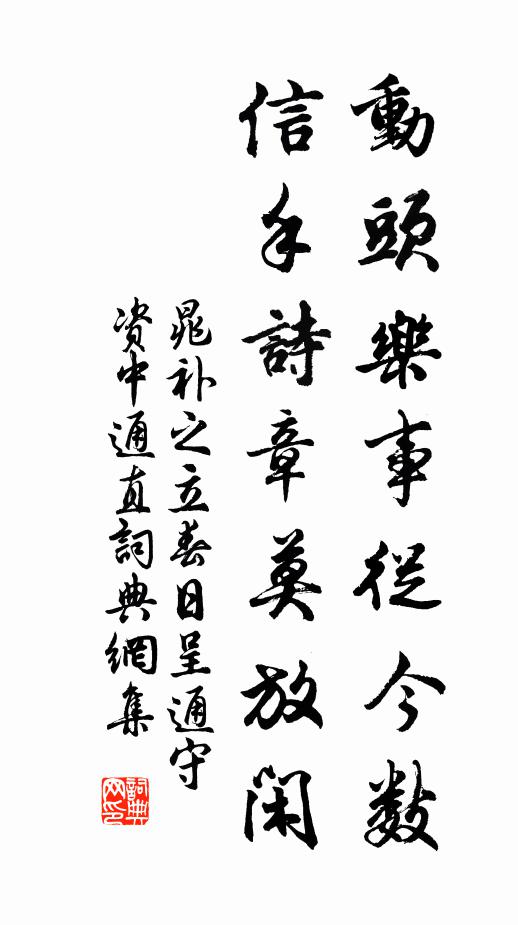 動頭樂事從今數
信手詩章莫放閑
晁补之立春日呈通守
资中通直詞典網集
詞典
网印